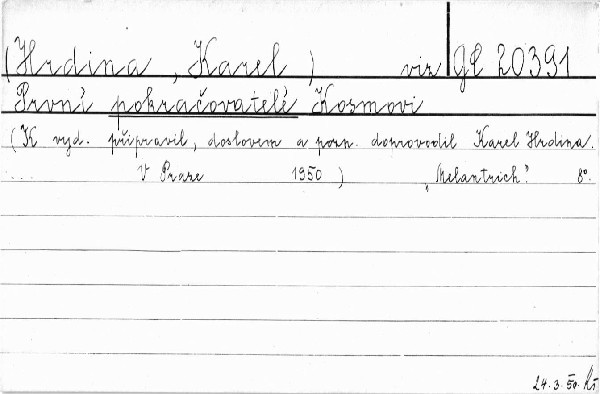 (Hrdina, Karel) viz GE 20391
První pokračovatelé Kosmovi
(K vyd. připravil, doslovem a pozn. doprovodil Karel Hrdina.
V Praze 1950) „Melantrich". 8°.
24.3.50.